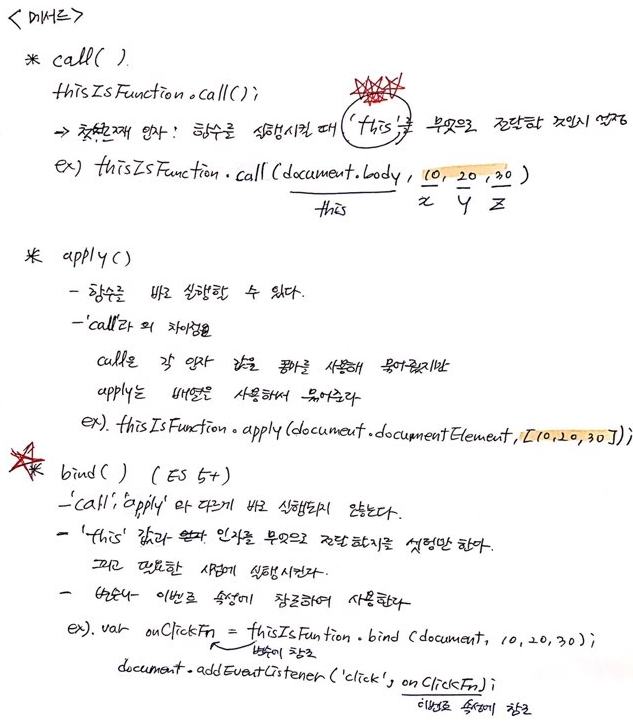 <메서드>
* call( ).
thisIsFunction.call();
→ 첫번째 인자 : 함수를 실행시킬 때 'this'를 무엇으로 전달할 것인지 설정
ex) thisIsFunction.call(document.body, 10, 20, 30)
this x y z
* apply()
- 함수를 바로 실행할 수 있다.
- 'call'과의 차이점은
call은 각 인자 값을 콤마를 사용해 묶어줬지만
apply는 배열은 사용해서 묶어준다
ex). thisIsFunction.apply(document.documentElement, [10,20,30]);
* bind( ) (ES 5+)
- 'call', 'apply'와 다르게 바로 실행되지 않는다.
- 'this' 값과 인자를 무엇으로 전달할지를 셋팅만 한다.
그리고 필요한 시점에 실행시킨다.
- 변수나 이벤트 속성에 참조하여 사용한다
ex). var onClickFn = thisIsFuntion.bind (document, 10,20,30);
변수에 참조
document.addEventListener('click', onClickFn);
이벤트 속성에 참조